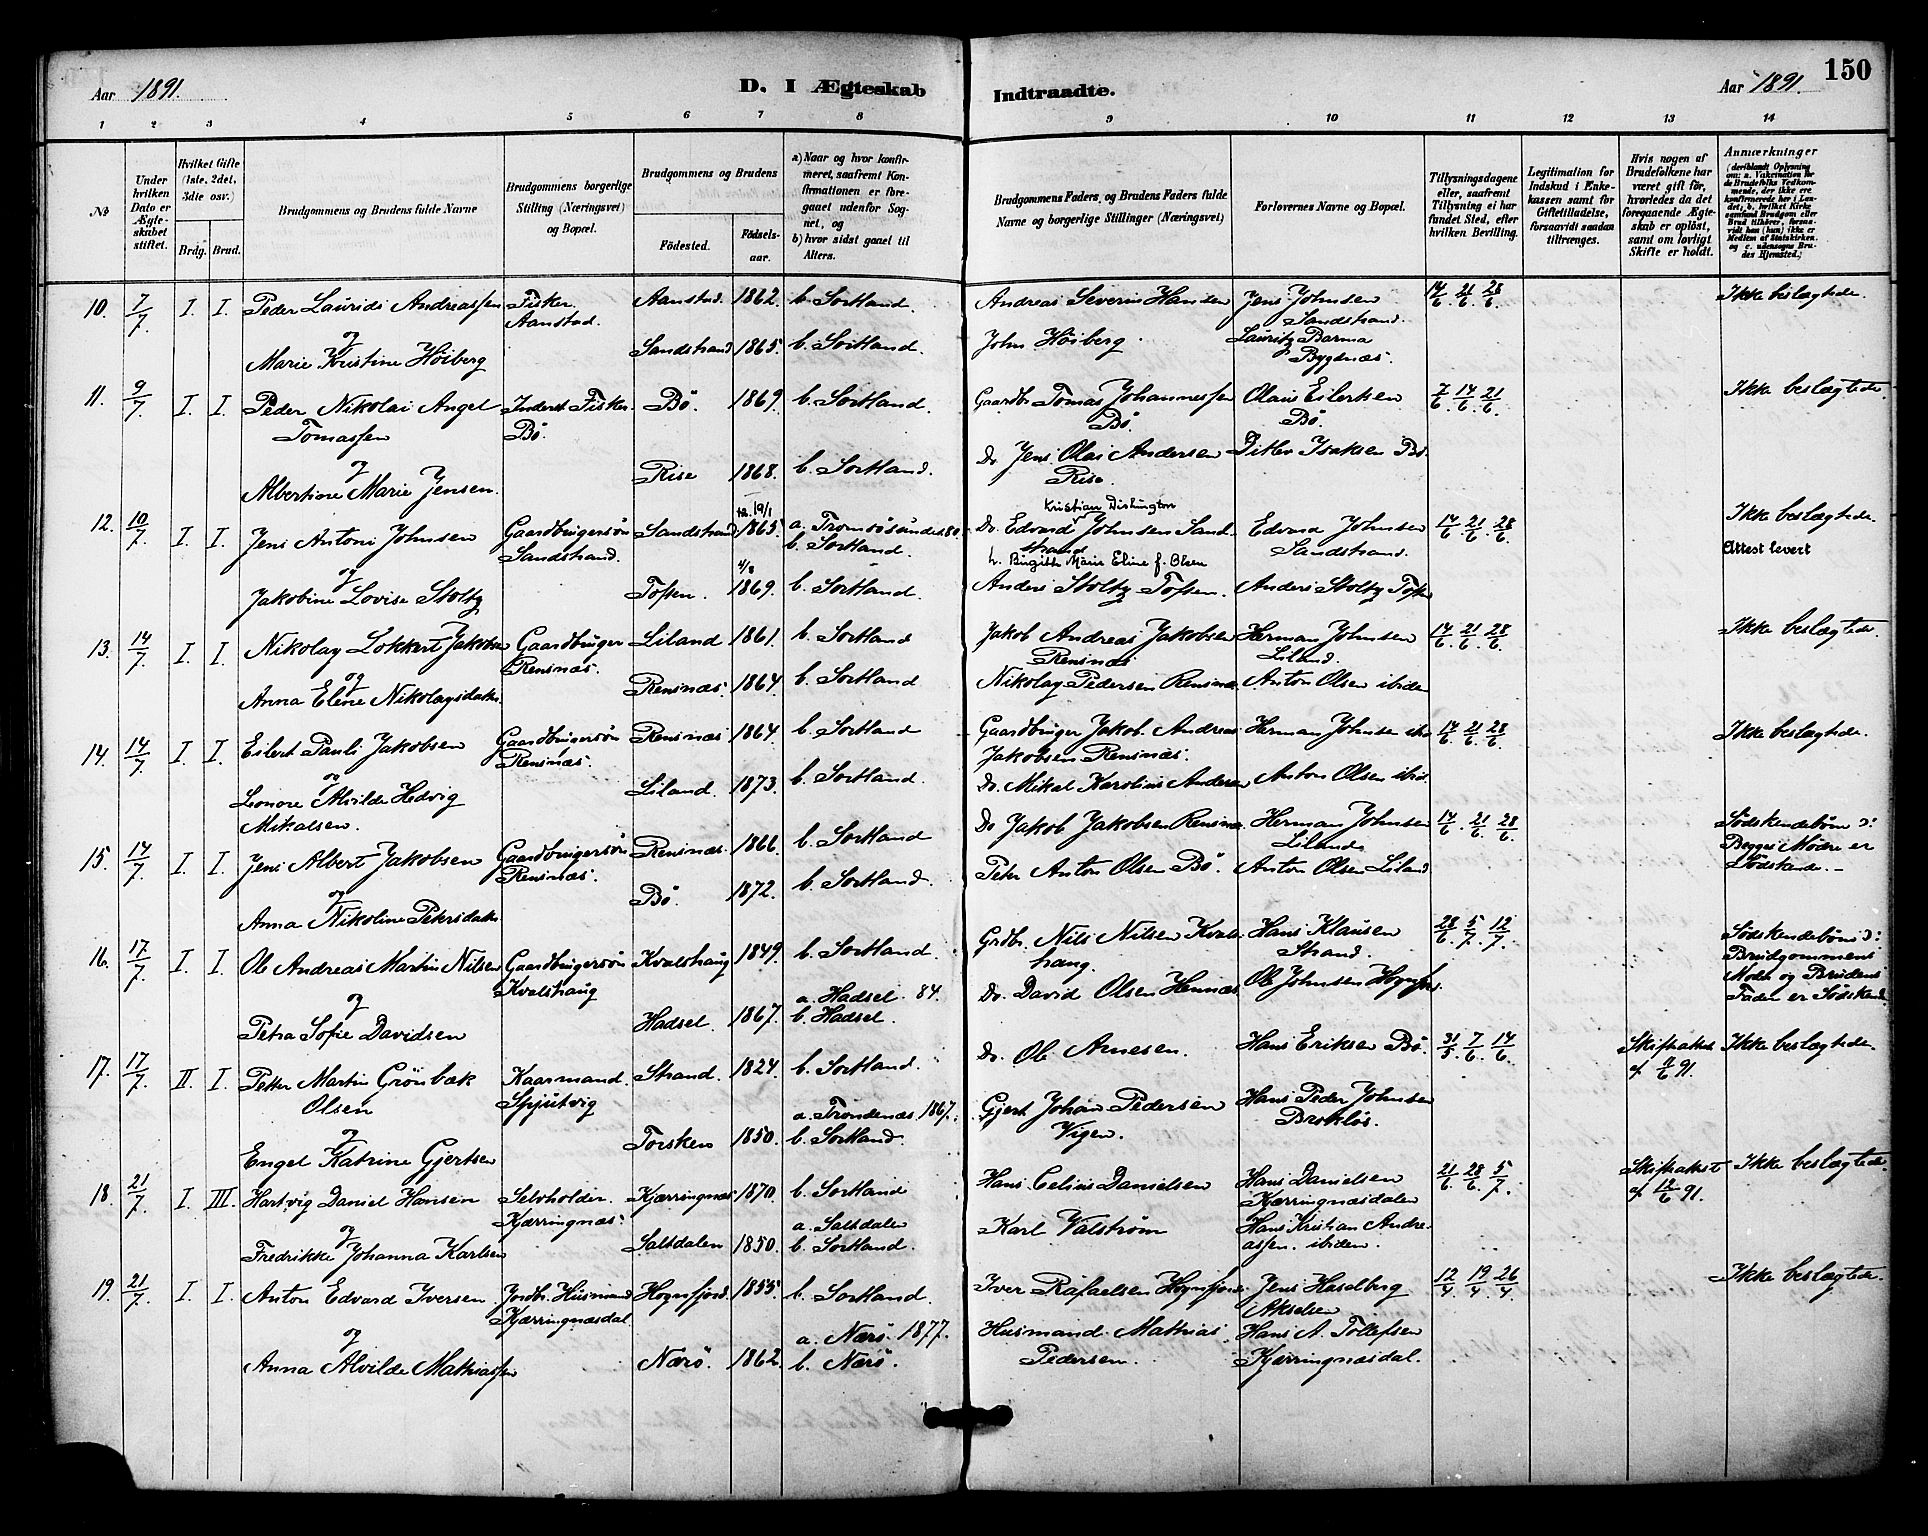 150
Aar 1891. D. I Ægteskab Indtraadte. Aar 1891.
1 2 3 4 5 6 7 8 9 10 11 12 13 14
No
Under hvilken Dato er Ægteskabet stiftet.
Hvilket Gifte (1ste, 2det, 3die osv.)
Brdg. Brud.
Brudgommens og Brudens fulde Navne
Brudgommens borgerlige Stilling (Næringsvei) og Bopæl.
Brudgommens og Brudens
Fødested. Fødselsaar.
a) Naar og hvor konfirmeret, saafremt Konfirmationen er foregaaet udenfor Sognet, og
b) hvor sidst gaaet til Alters.
Brudgommens Faders og Brudens Faders fulde Navne og borgerlige Stillinger (Næringsvei)
Forlovernes Navne og Bopæl.
Tillysningsdagene eller, saafremt Tillysning ei har fundet Sted, efter hvilken Bevilling.
Legitimation for Indskud i Enkekassen samt for Giftetilladelse, forsaavidt saadan tiltrænges.
Hvis nogen af Brudefolkene har været gift før, hvorledes da det foregaaende Ægteskab er opløst, samt om lovligt Skifte er holdt.
Anmærkninger
(deriblandt Oplysning om: a. Vaksination for de Brudefolks Vedkommende, der ikke ere konfirmerede her i Landet; b. hvilket Kirkesamfund Brudgom eller Brud tilhører, forsaavidt han (hun) ikke er Medlem af Statskirken, og c. udensogns Brudes Hjemsted.)
10. 7/7 I. I. Peder Laurids Andreassen Fisker Aanstad. Aanstad. 1862. b. Sortland. Andreas Severin Hansen Jens Johnsen Sandstrand. 14/6. 21/6 28/6. Ikke beslægtede.
og
Marie Kristine Høiberg Sandstrand 1865. b. Sortland. John Høiberg. Lauritz Barma Bygdnæs.
11. 9/7 I. I. Peder Nikolai Angel Tomassen Inderst Fisker Bö. Bö. 1869. b. Sortland. Gaardbr. Tomas Johannessen Bö. Olaus Eilertsen Bö. 7/6 14/6 21/6. Ikke beslægtede.
og
Albertine Marie Jensen. Rise 1868. b. Sortland. Do. Jens Olai Andersen Rise. Ditlev Isaksen Bö.
12. 10/7 I. I. Jens Antoni Johnsen Gaardbrugersön Sandstrand. Sandstrand 19/1 1865. a. Tromsösundet 80. b. Sortland. Do. Edvard Kristian Diskington Johnsen Sandstrand Edvard Johnsen Sandstrand. 14/6. 21/6. 28/6 Ikke beslægtede.
h. Birgitte Marie Eline f. Olsen
Attest levert
og
Jakobine Lovise Stoltz Toften. 4/8 1869. b. Sortland. Anders Stoltz Toften. Anders Stoltz Toften
13. 14/7 I. I. Nikolay Lokkert Jakobsen Gaardbruger Rensnæs. Liland 1861. b. Sortland Jakob Andreas Jakobsen Rensnæs Herman Johnsen Liland. 14/6. 21/6. 28/6. Ikke beslægtede.
og
Anna Elene Nikolaysdatter. Rensnæs. 1864. b. Sortland Nikolay Pedersen Rensnæs. Anton Olsen ibidem
14. 14/7 I. I. Eilert Pauli Jakobsen Gaardbrugersön Rensnæs. Rensnæs 1864. b. Sortland Gaardbruger Jakob Andreas Jakobsen Rensnæs. Herman Johnsen ibid 14/6 21/6 28/6. Ikke beslægtede.
og
Leonore Alvilde Hedvig Mikalsen. Liland. 1873. b. Sortland. Do. Mikal Karolius Andersen Anton Olsen ibid.
15. 14/7 I. I. Jens Albert Jakobsen Gaardbrugersön Rensnæs. Rensnæs. 1866. b. Sortland Do Jakob Jakobsen Rensnæs. Herman Johnsen Liland. 14/6. 21/6 28/6. Södskendebörn ɔ: Begges Mödre er Södskende. —
og
Anna Nikoline Petersdatter Bö. 1872. b. Sortland. Peter Anton Olsen Bö. Anton Olsen Liland
16. 17/7 I. I. Ole Andreas Martin Nilsen Gaardbrugersön Kvalshaug Kvalshaug 1849. b. Sortland. Grdbr. Nils Nilsen Kvalshaug. Hans Klausen Strand. 28/6 5/7 12/7. Södskendebörn ɔ: Brudgommens Moder og Brudens Fader er Södskende
og
Petra Sofie Davidsen Hadsel. 1867. a. Hadsel 84. b. Hadsel. Do. David Olsen Hennæs. Ole Johnsen Hognfjord.
17. 17/7 II. I. Petter Martin Grönbæk Olsen Kaarmand. Spjutvig Strand. 1824. b. Sortland. Do. Ole Arnesen. Hans Eriksen Bö. 31/5. 7/6. 14/6. Skifteattest af 11/6 91. Ikke beslægtede.
og
Engel Katrine Gjertsen Torsken 1850. a. Trondenæs 1867. b. Sortland. Gjert Johan Pedersen Vigen. Hans Peder Johnsen Brokløs.
18. 21/7 I. III. Hartvig Daniel Hansen Selvholder. Kjærringnæs. Kjærringnæs 1870. b. Sortland Hans Celius Danielsen Hans Danielsen Kjærringnæsdalen 21/6. 28/6. 5/7. Skifteattest af 12/6 91. Ikke beslægtede.
og
Fredrikke Johanna Karlsen Saltdalen 1850. a. Saltdalen b. Sortland. Karl Valstrøm Hans Kristian Andreassen. ibidem.
19. 21/7. I. I. Anton Edvard Iversen Jordbr. Husmand Kjærringnæsdal Hognfjord. 1855. b. Sortland. Iver Rafaelsen Hognfjord Jens Haselberg Akselsen 12/4 19/4 26/4 Ikke beslægtede.
og
Anna Alvilde Mathiassen Nærö. 1862. a. Nærö. 1877. b. Nærö. Husmand Mathias Pedersen. Hans A. Tollefsen Kjærringnæsdal.